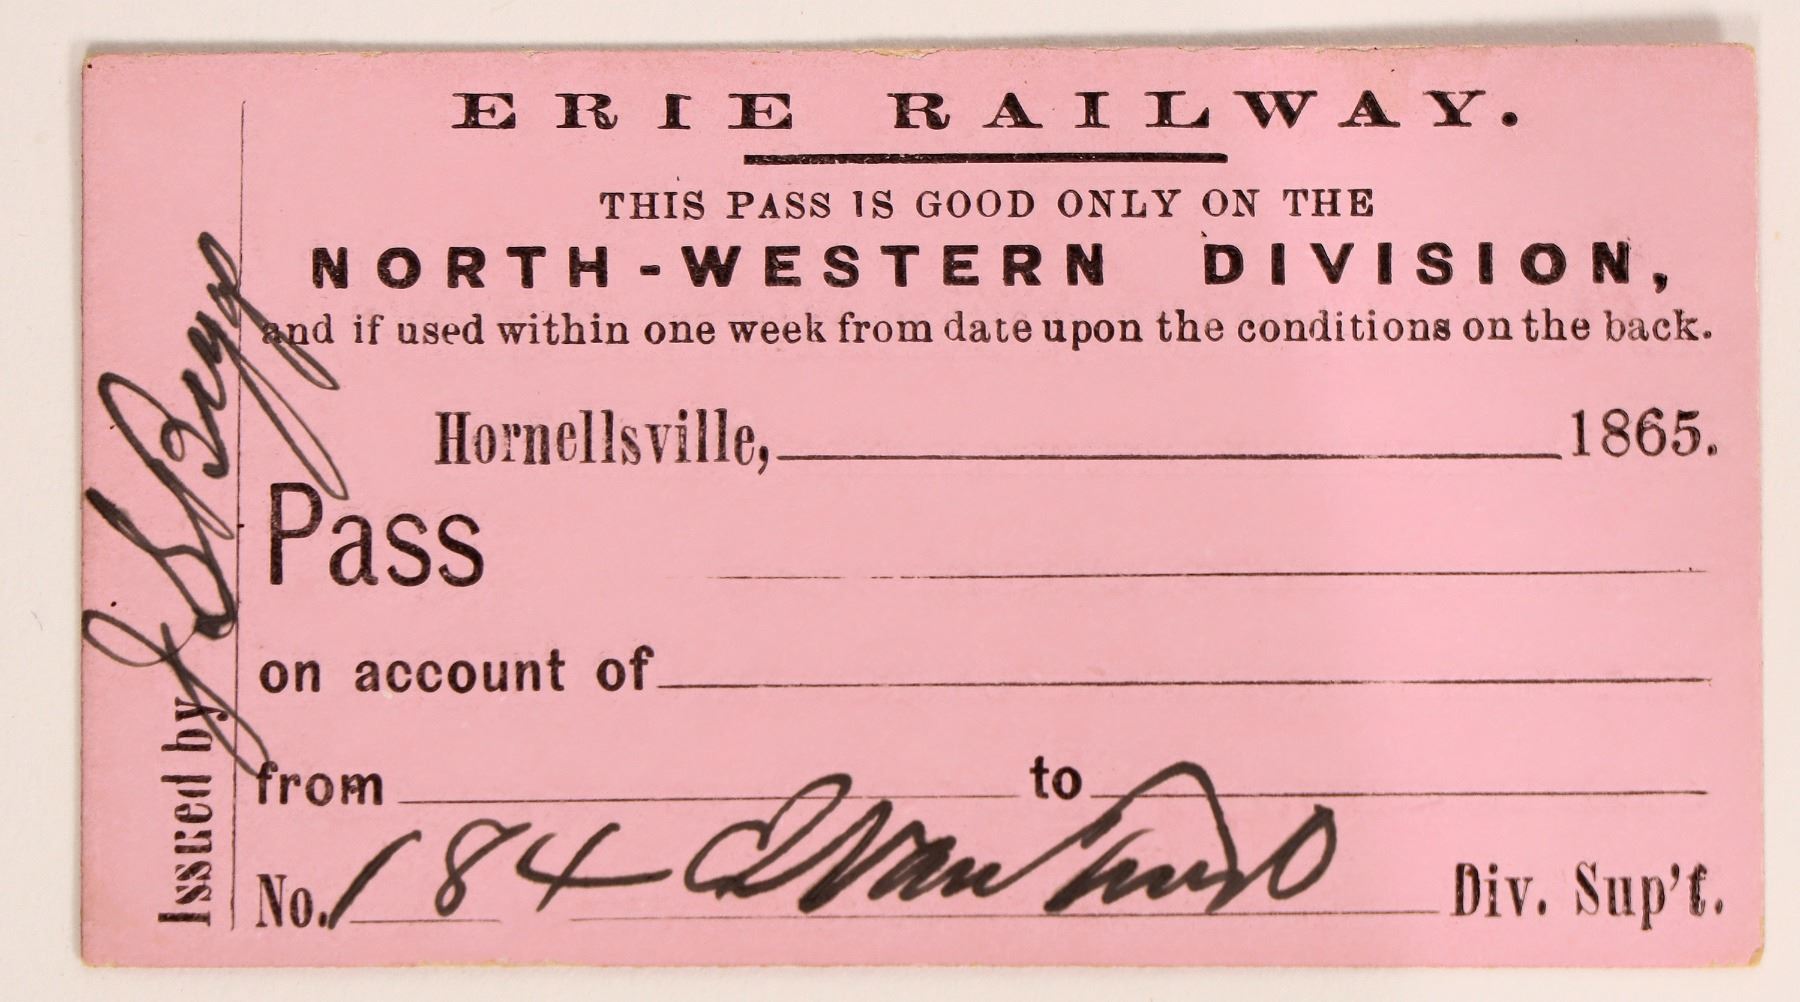 ERIE RAILWAY.
THIS PASS IS GOOD ONLY ON THE
NORTH-WESTERN DIVISION,
and if used within one week from date upon the conditions on the back.
Hornellsville, 1865.
Pass
on account of
from to
No. 184 Div. Sup't.
Issued by